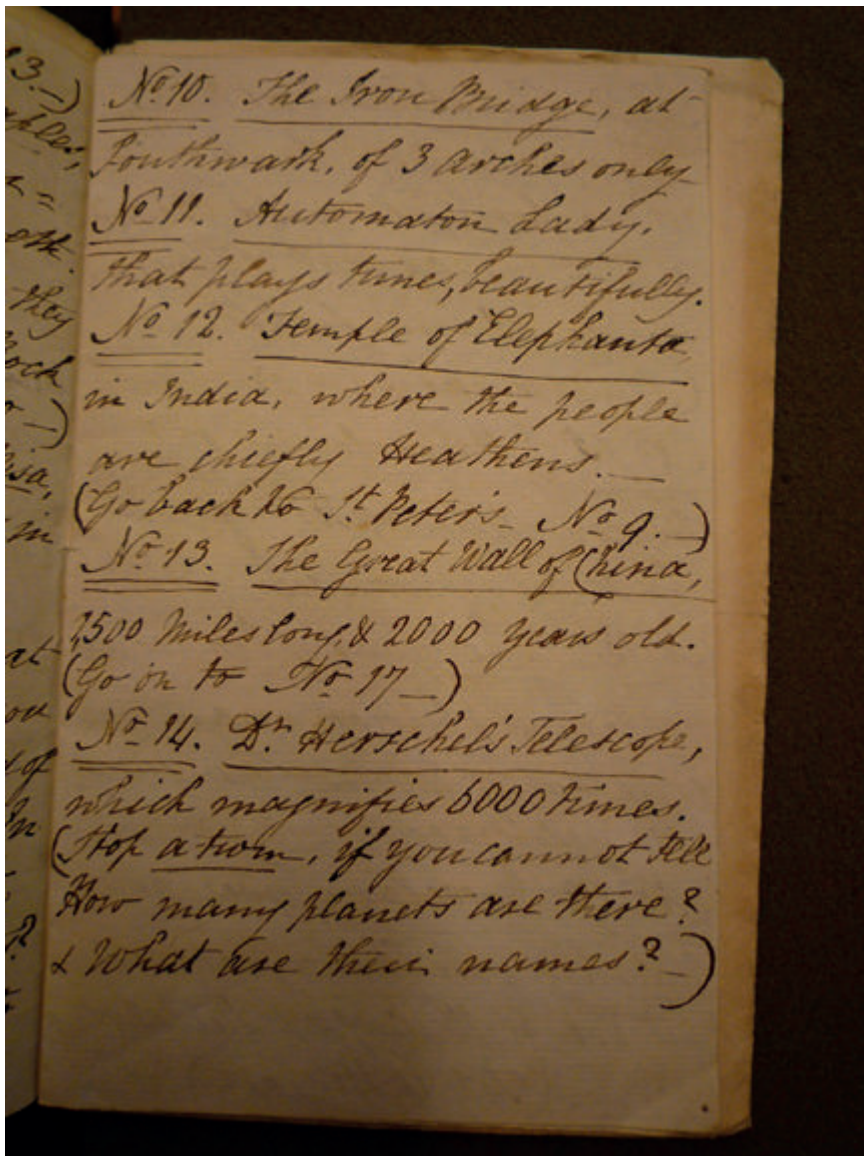 3.—)
they
Rock
Pisa,
in
at
of
In
?
No 10. The Iron Bridge, at
Southwark, of 3 arches only
No 11. Automaton Lady.
that plays tunes, beautifully.
No 12. Temple of Elephanta,
in India, where the people
are chiefly Heathens.—
(Go back to St Peter's— No 9.—)
No 13. The Great Wall of China,
1,500 miles long, & 2000 years old.
(Go on to No 17—)
No 14. Dr Herschel's Telescope,
which magnifies 6000 times.
(Stop a turn, if you cannot tell
How many planets are there?
& What are their names?—)